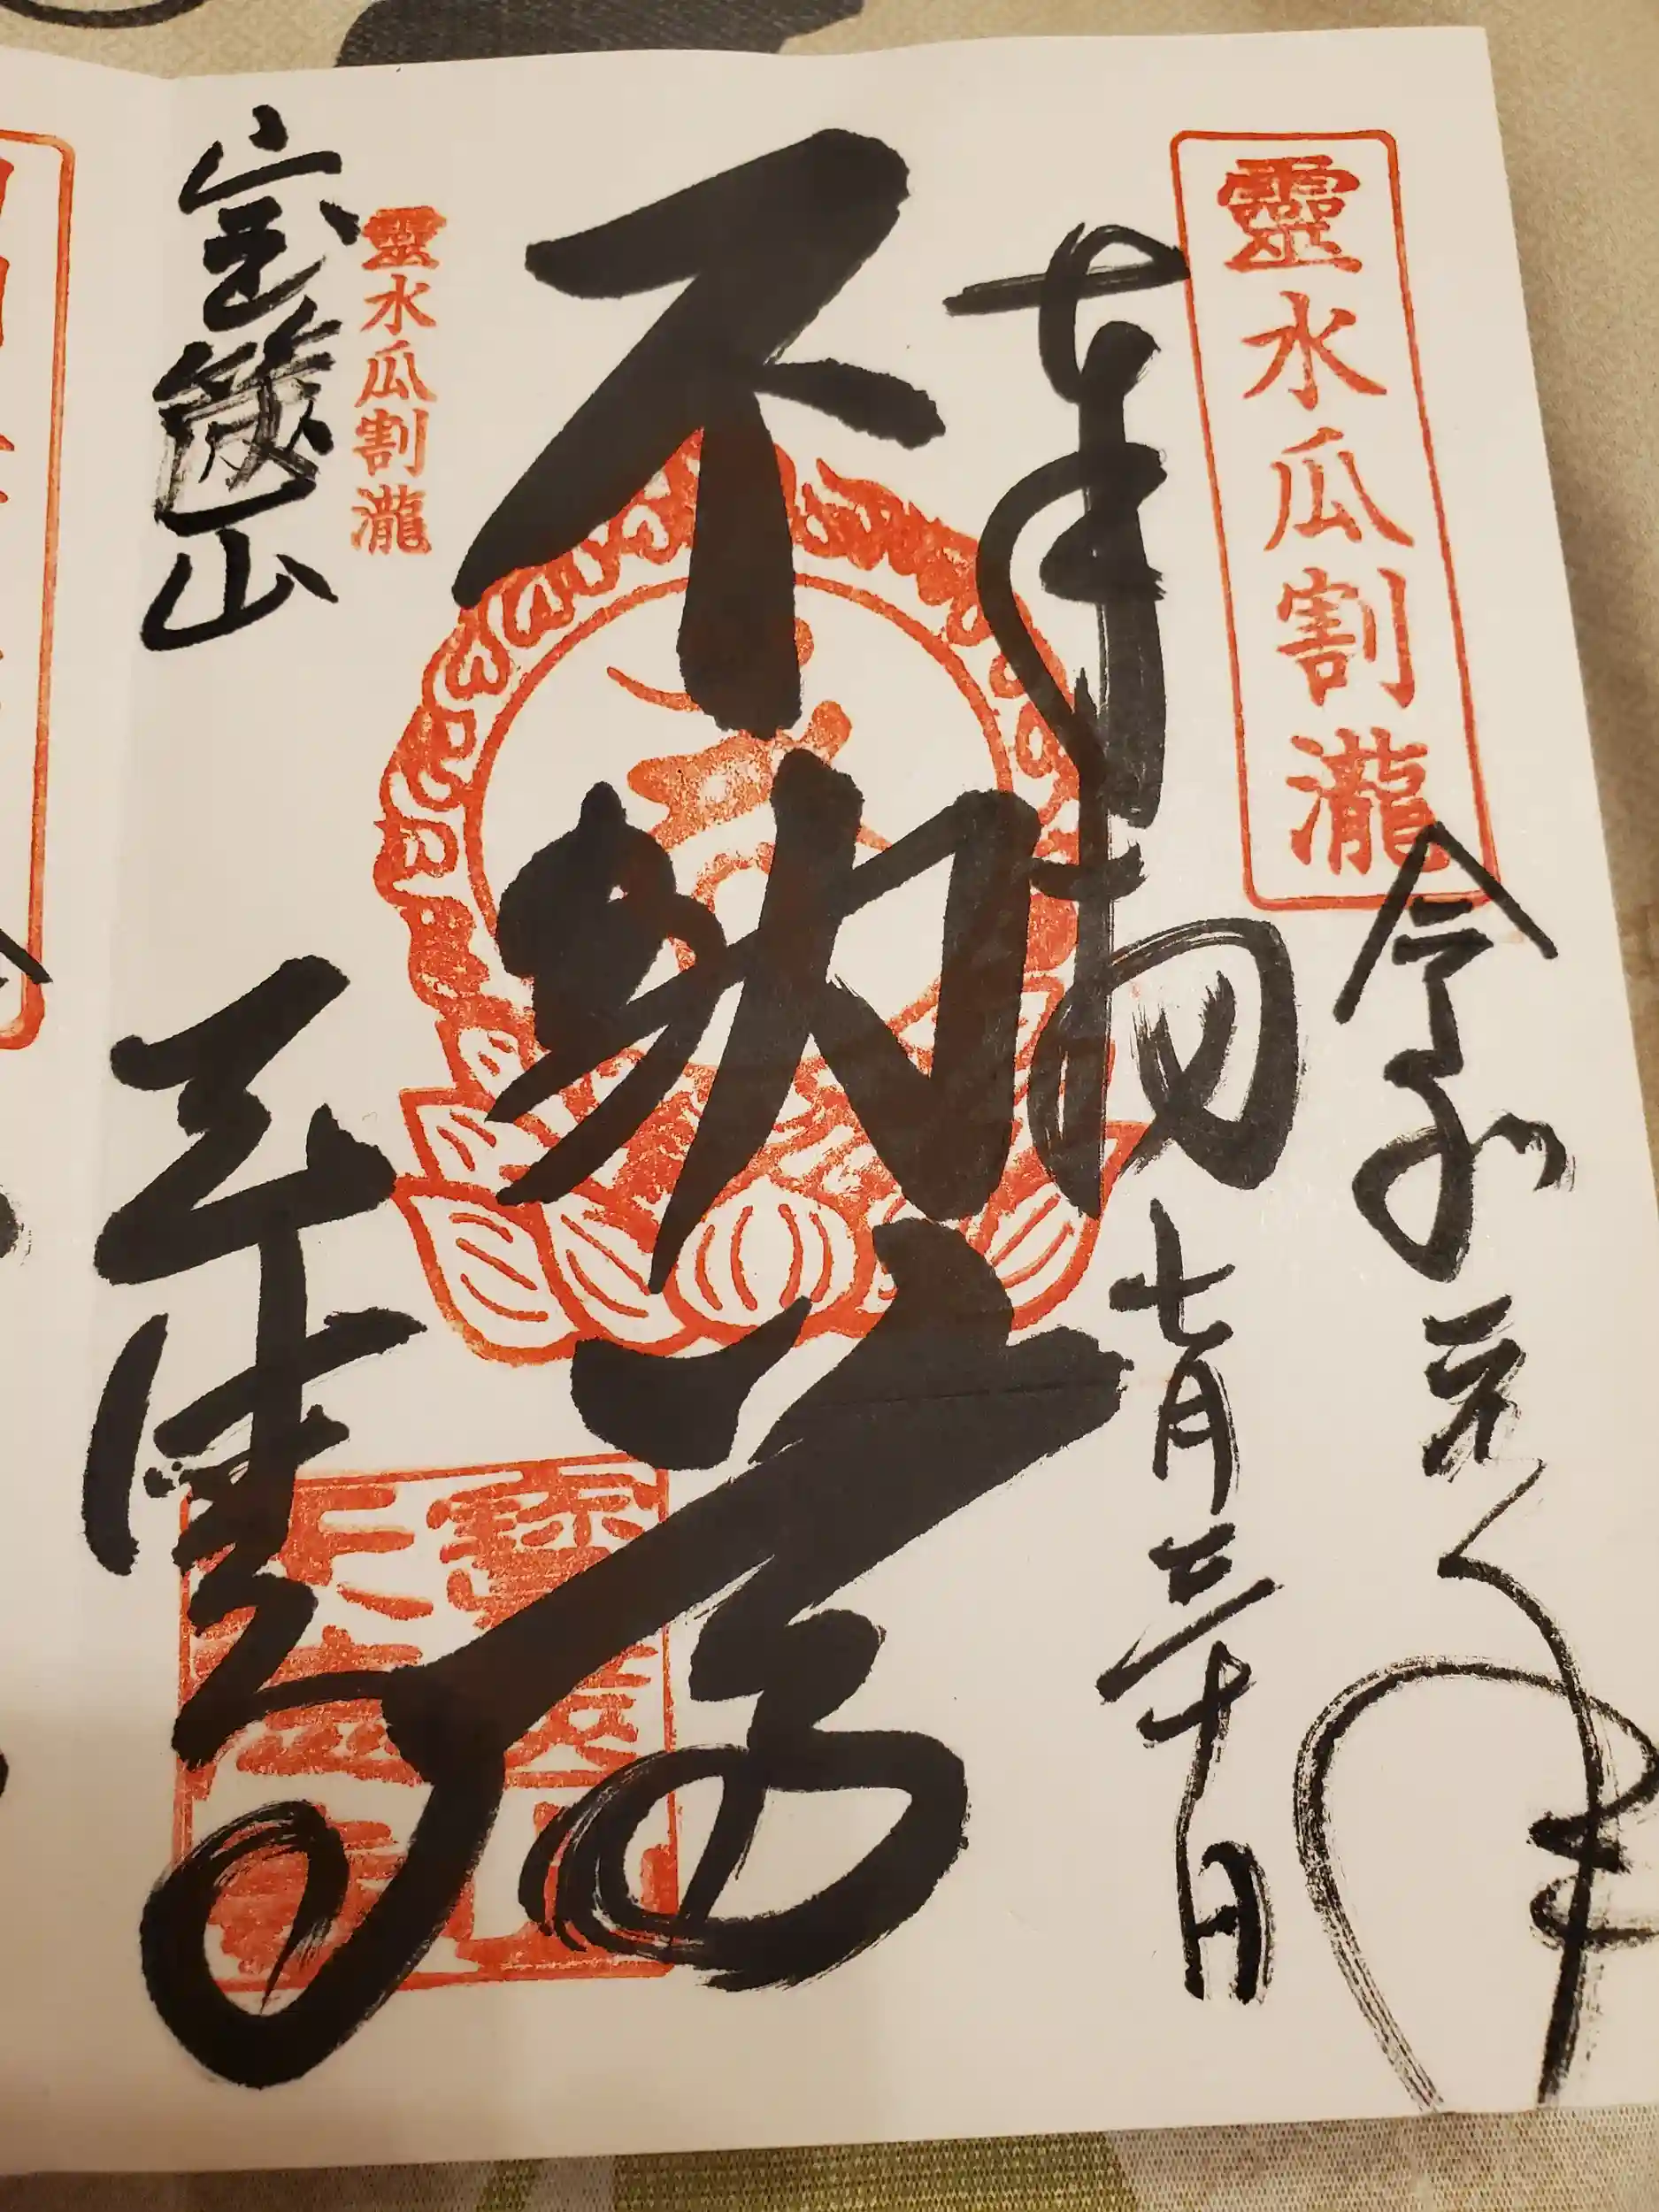 靈水瓜割瀧
令和元年
奉拝
七月三十日
不動尊
靈水瓜割瀧
宝篋山
天徳寺